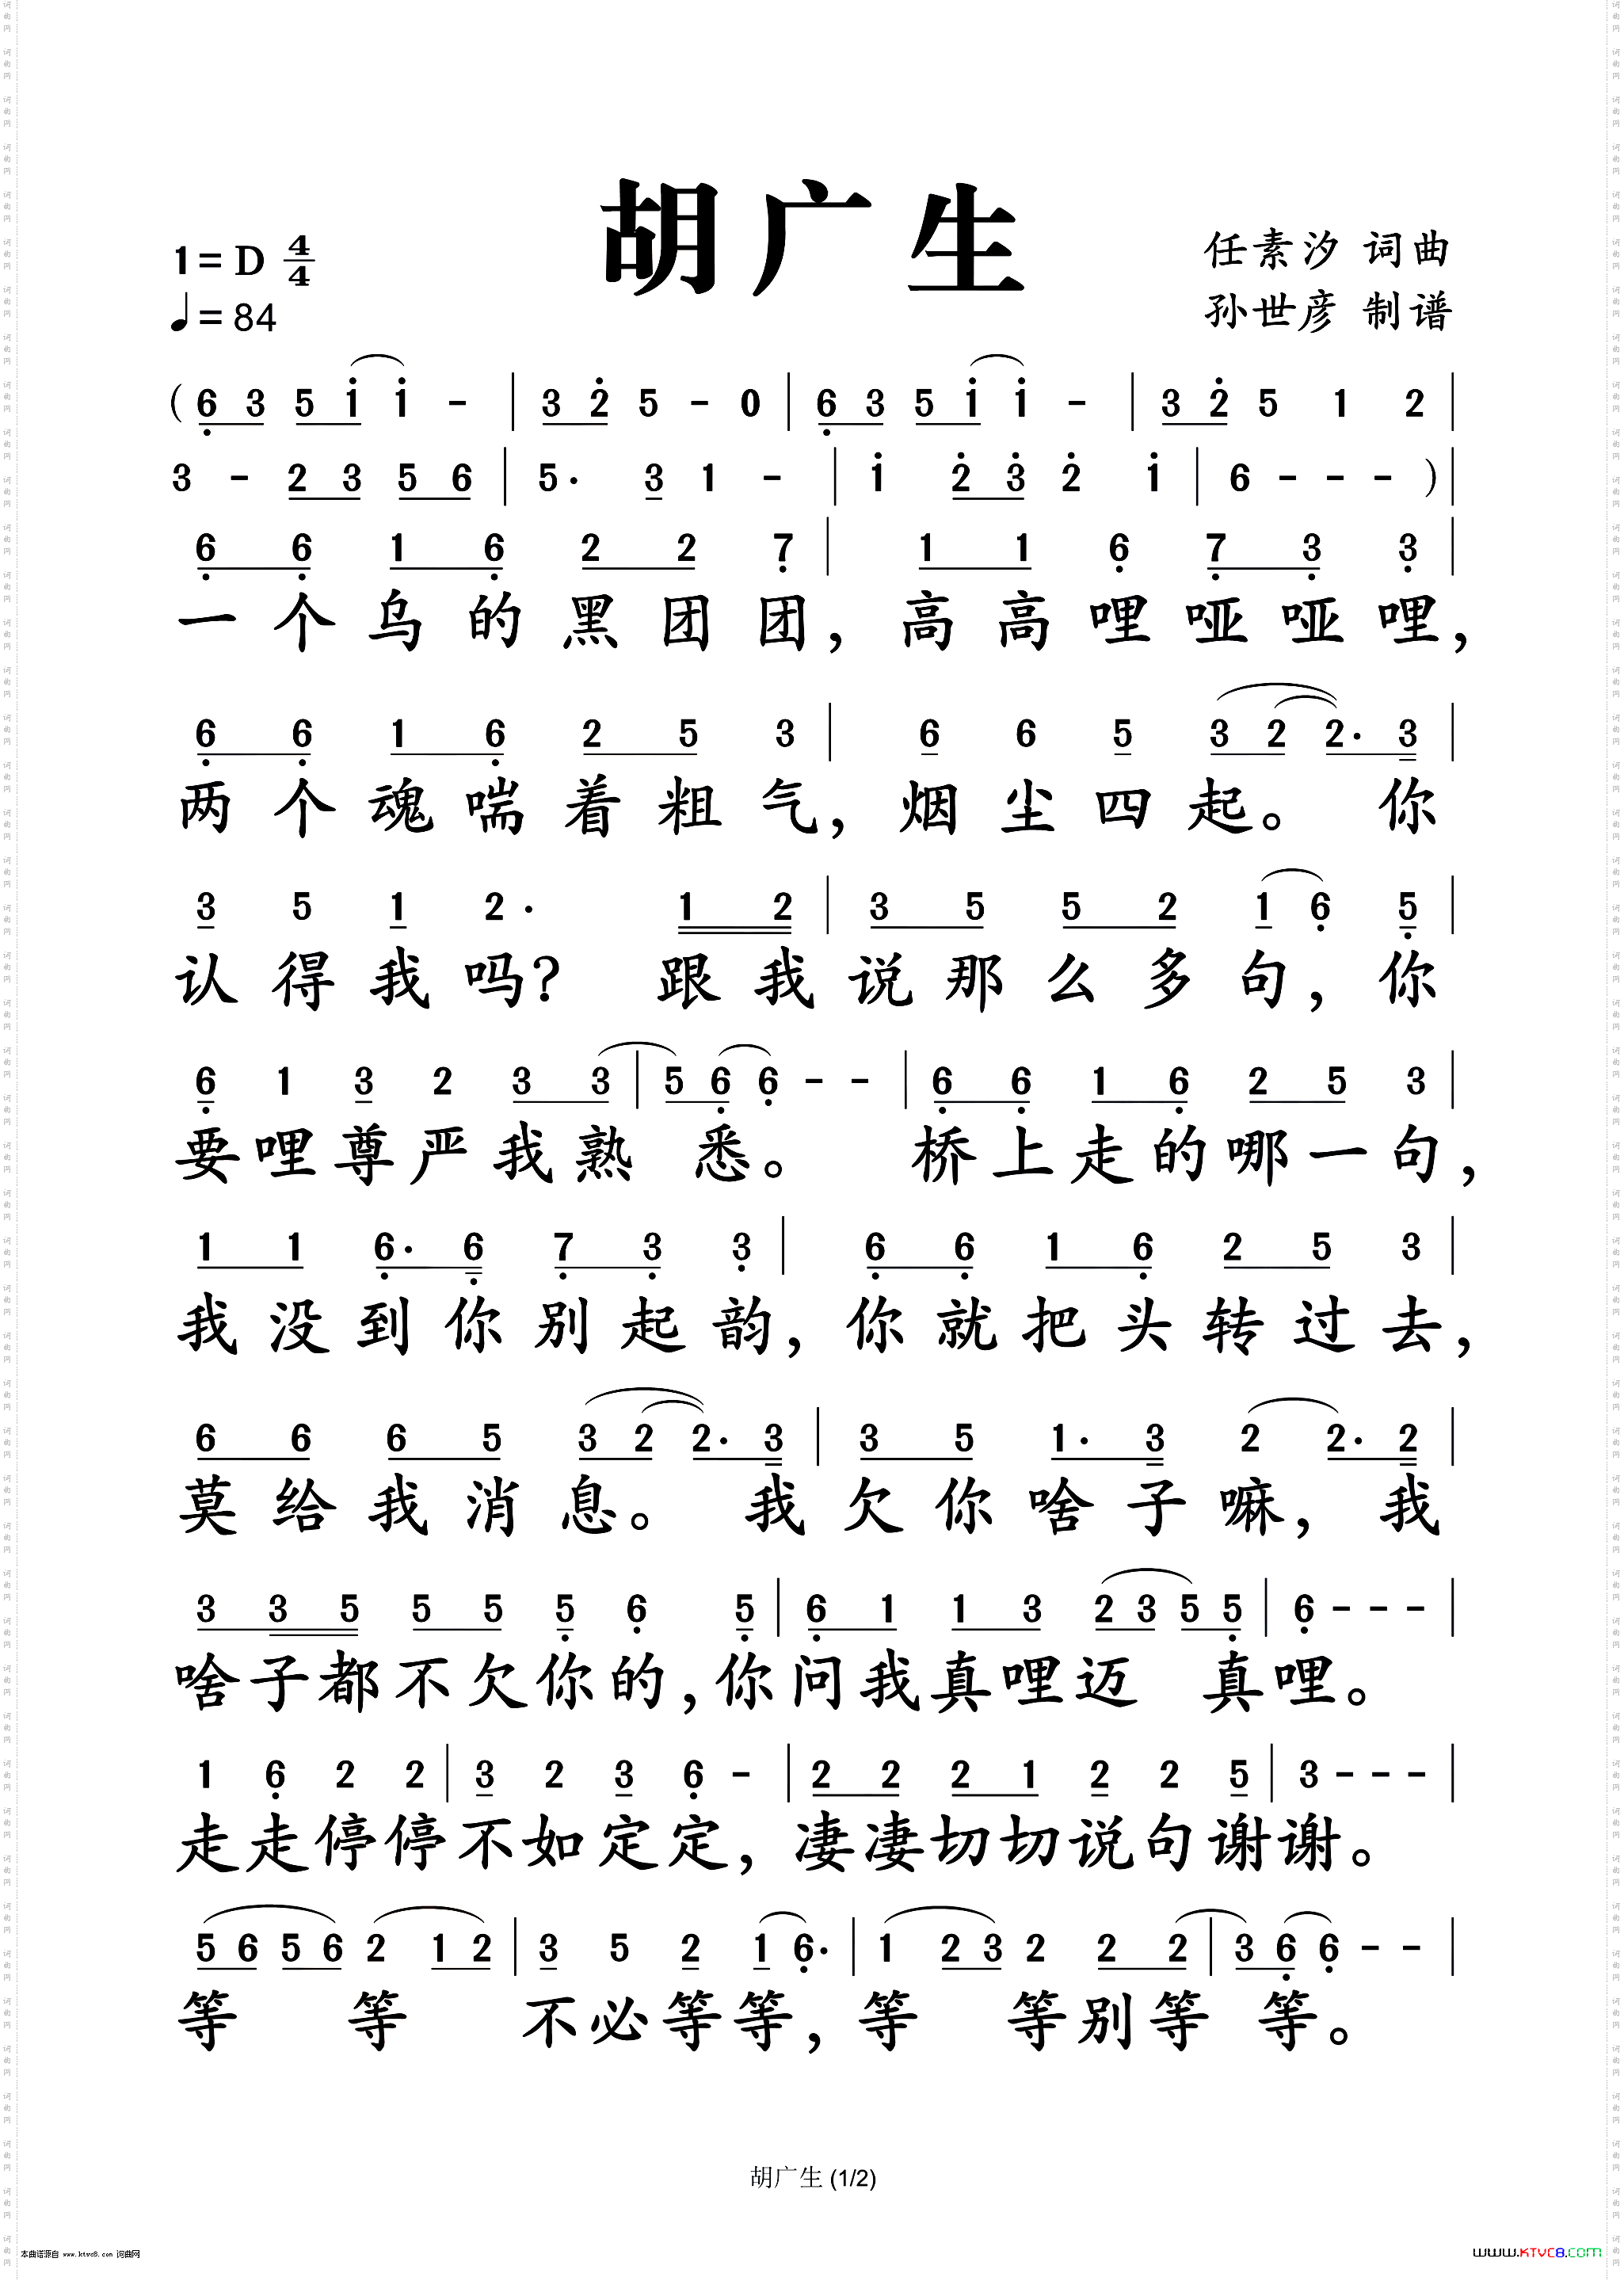 胡广生
1=D 4/4
♩=84
任素汐 词曲
孙世彦 制谱
( 6 3 5 i i - | 3 2 5 - 0 | 6 3 5 i i - | 3 2 5 1 2 |
3 - 2 3 5 6 | 5. 3 1 - | i 2 3 2 i | 6 - - - ) |
6 6 1 6 2 2 7 | 1 1 6 7 3 3 |
一个乌的黑团团，高高哩哑哑哩，
6 6 1 6 2 5 3 | 6 6 5 3 2 2. 3 |
两个魂喘着粗气，烟尘四起。 你
3 5 1 2. 1 2 | 3 5 5 2 1 6 5 |
认得我吗? 跟我说那么多句，你
6 1 3 2 3 3 | 5 6 6 - - | 6 6 1 6 2 5 3 |
要哩尊严我熟 悉。 桥上走的哪一句，
1 1 6. 6 7 3 3 | 6 6 1 6 2 5 3 |
我没到你别起韵，你就把头转过去，
6 6 6 5 3 2 2. 3 | 3 5 1. 3 2 2. 2 |
莫给我消息。 我欠你啥子嘛，我
3 3 5 5 5 5 6 5 | 6 1 1 3 2 3 5 5 | 6 - - - |
啥子都不欠你的，你问我真哩迈 真哩。
1 6 2 2 | 3 2 3 6 - | 2 2 2 1 2 2 5 | 3 - - - |
走走停停不如定定，凄凄切切说句谢谢。
5 6 5 6 2 1 2 | 3 5 2 1 6. | 1 2 3 2 2 2 | 3 6 6 - - |
等 等 不必等等，等 等别等 等。
胡广生 (1/2)
本曲谱源自 www.ktvc8.com 词曲网
www.KTVC8.com